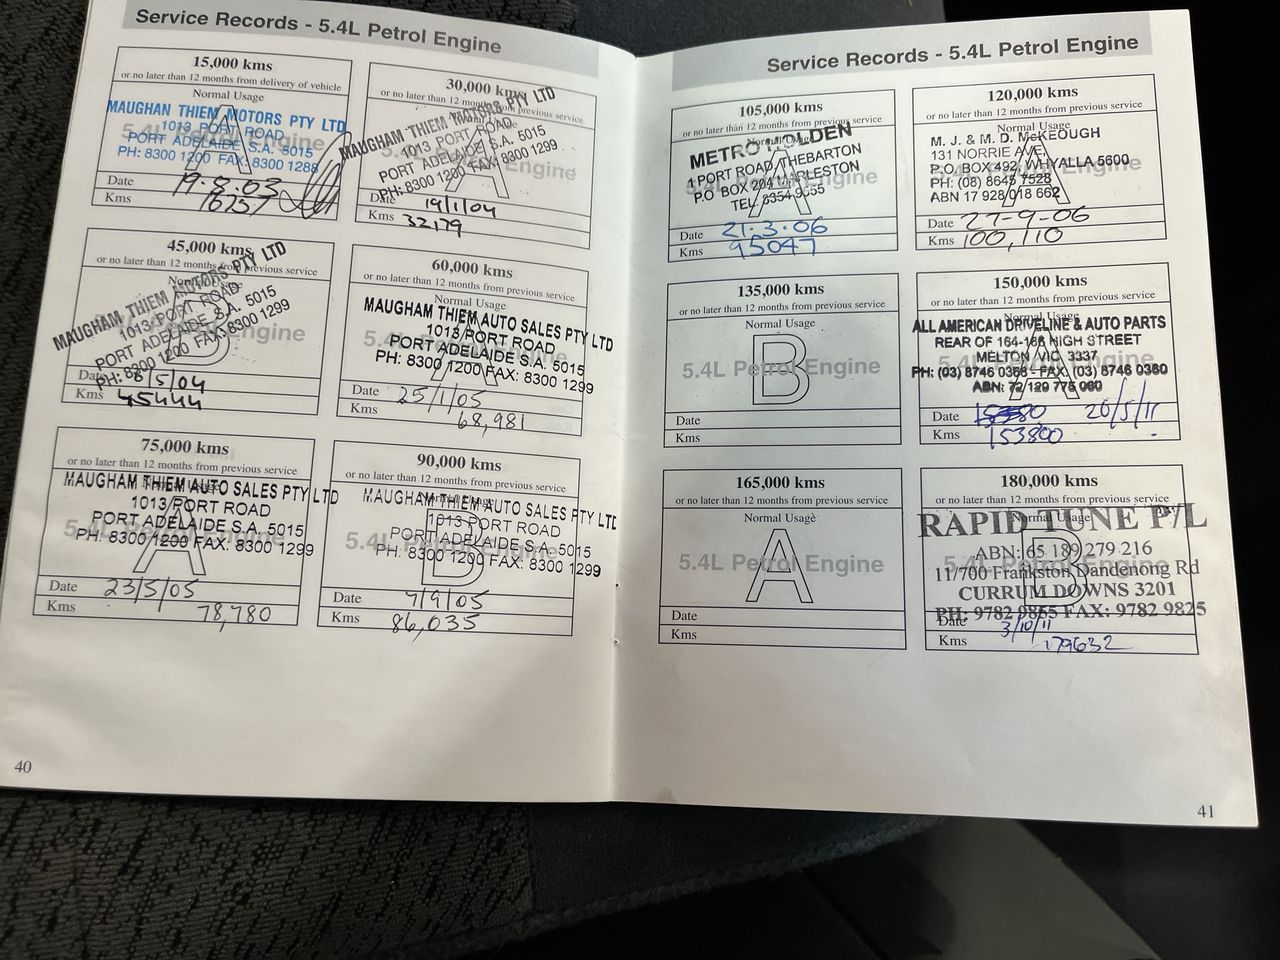 Service Records - 5.4L Petrol Engine
15,000 kms
or no later than 12 months from delivery of vehicle
Normal Usage
A
5.4L Petrol Engine
MAUGHAN THIEM MOTORS PTY LTD
1013 PORT ROAD
PORT ADELAIDE S.A. 5015
PH: 8300 1200 FAX: 8300 1288
Date 19.8.03
Kms 16757
30,000 kms
or no later than 12 months from previous service
Normal Usage
A
MAUGHAM THIEM MOTORS PTY LTD
1013 PORT ROAD
PORT ADELAIDE S.A. 5015
PH: 8300 1200 FAX: 8300 1299
Date 19/1/04
Kms 32179
45,000 kms
or no later than 12 months from previous service
Normal Usage
B
MAUGHAM THIEM MOTORS PTY LTD
1013 PORT ROAD
PORT ADELAIDE S.A. 5015
PH: 8300 1200 FAX: 8300 1299
Date /5/04
Kms 45444
60,000 kms
or no later than 12 months from previous service
Normal Usage
A
MAUGHAM THIEM AUTO SALES PTY LTD
1013 PORT ROAD
PORT ADELAIDE S.A. 5015
PH: 8300 1200 FAX: 8300 1299
Date 25/1/05
Kms 68,981
75,000 kms
or no later than 12 months from previous service
Normal Usage
A
5.4L Petrol Engine
MAUGHAM THIEM AUTO SALES PTY LTD
1013 PORT ROAD
PORT ADELAIDE S.A. 5015
PH: 8300 1200 FAX: 8300 1299
Date 23/5/05
Kms 78,780
90,000 kms
or no later than 12 months from previous service
Normal Usage
B
5.4L Petrol Engine
MAUGHAM THIEM AUTO SALES PTY LTD
1013 PORT ROAD
PORT ADELAIDE S.A. 5015
PH: 8300 1200 FAX: 8300 1299
Date 7/9/05
Kms 86,035
40
Service Records - 5.4L Petrol Engine
105,000 kms
or no later than 12 months from previous service
Normal Usage
A
5.4L Petrol Engine
METRO HOLDEN
1 PORT ROAD, THEBARTON
P.O BOX 204 MARLESTON
TEL. 8354 9055
Date 21.3.06
Kms 95047
120,000 kms
or no later than 12 months from previous service
Normal Usage
A
5.4L Petrol Engine
M. J. & M. D. McKEOUGH
131 NORRIE AVE,
P.O. BOX 492, WHYALLA 5600
PH: (08) 8645 7528
ABN 17 928 018 662
Date 27-9-06
Kms 100,110
135,000 kms
or no later than 12 months from previous service
Normal Usage
B
5.4L Petrol Engine
Date
Kms
150,000 kms
or no later than 12 months from previous service
Normal Usage
A
5.4L Petrol Engine
ALL AMERICAN DRIVELINE & AUTO PARTS
REAR OF 164-166 HIGH STREET
MELTON VIC. 3337
PH: (03) 8746 0368 - FAX: (03) 8746 0380
ABN: 72 129 775 060
Date 26/5/11
Kms 153800
165,000 kms
or no later than 12 months from previous service
Normal Usage
A
5.4L Petrol Engine
Date
Kms
180,000 kms
or no later than 12 months from previous service
Normal Usage
B
5.4L Petrol Engine
RAPID TUNE P/L
ABN: 65 189 279 216
11/700 Frankston Dandenong Rd
CURRUM DOWNS 3201
PH: 9782 9855 FAX: 9782 9825
Date 3/10/11
Kms 179632
41